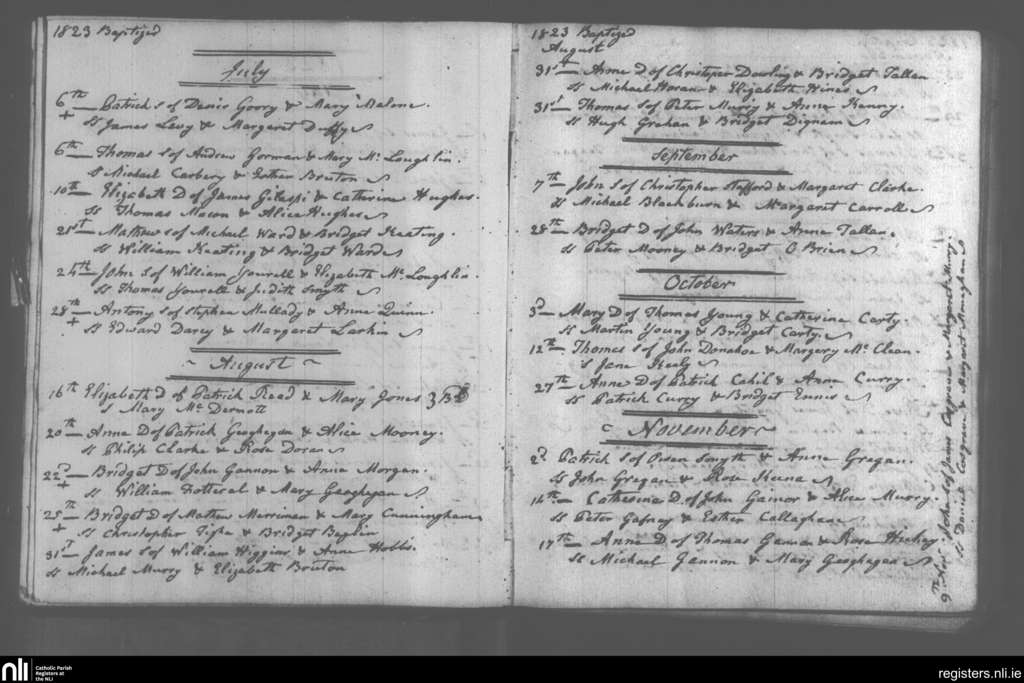 1823 Baptized
July
6th Patrick S of Denis Goory & Mary Malone.
+ Ss James Levy & Margaret Duffy
6th Thomas S of Andrew Gorman & Mary Mc Loughlin.
S Michael Carbery & Esther Bruton
10th Elizabeth D of James Gilaspi & Catherine Hughes.
Ss Thomas Macon & Alice Hughes
21st Mathew S of Michael Ward & Bridget Keating.
Ss William Keating & Bridget Ward
24th John S of William Yourell & Elizabeth Mc Loughlin.
Ss Thomas Yourell & Judith Smyth
28th Antony S of Stephen Mullady & Anne Quinn.
+ Ss Edward Darcy & Margaret Larkin
August
16th Elizabeth D of Patrick Read & Mary Jones
S Mary Mc Dermott
20th Anne D of Patrick Geoghegan & Alice Mooney.
Ss Philip Clarke & Rose Doran
22d Bridget D of John Gannon & Anne Morgan.
+ Ss William Fotteral & Mary Geoghegan
25th Bridget D of Mathew Merriman & Mary Cunningham
+ Ss Christopher Tighe & Bridget Baglin
31st James S of William Higgins & Anne Hobbs.
Ss Michael Murry & Elizabeth Bruton
1823 Baptized
August
31st Anne D of Christoper Dowling & Bridget Tallan
Ss Michael Horan & Elizabeth Hines
31st Thomas S of Peter Murry & Anne Kenny.
Ss Hugh Graham & Bridget Dignam
September
7th John S of Christopher Stafford & Margaret Clarke.
Ss Michael Blackburn & Margaret Carroll
28th Bridget D of John Waters & Anne Tallan.
Ss Peter Mooney & Bridget O Brien
October
3d Mary D of Thomas Young & Catherine Carty.
Ss Martin Young & Bridget Carty.
12th Thomas S of John Donahoe & Margery Mc Clean.
S Jane Kealy
27th Anne D of Patrick Cahil & Anne Curry.
Ss Patrick Curry & Bridget Ennis
November
2d Patrick S of Owen Smyth & Anne Gregan.
Ss John Gregan & Rose Keena
14th Catherine D of John Gainor & Alice Murry.
Ss Peter Gafney & Esther Callaghan
17th Anne D of Thomas Gaman & Rose Hickey
Ss Michael Gannon & Mary Geoghegan
9th Nov. John S of James Cosgrave & Margaret Murry.
Ss Daniel Cosgrave & Margaret Monaghan
nli
Catholic Parish
Registers at
the NLI
registers.nli.ie